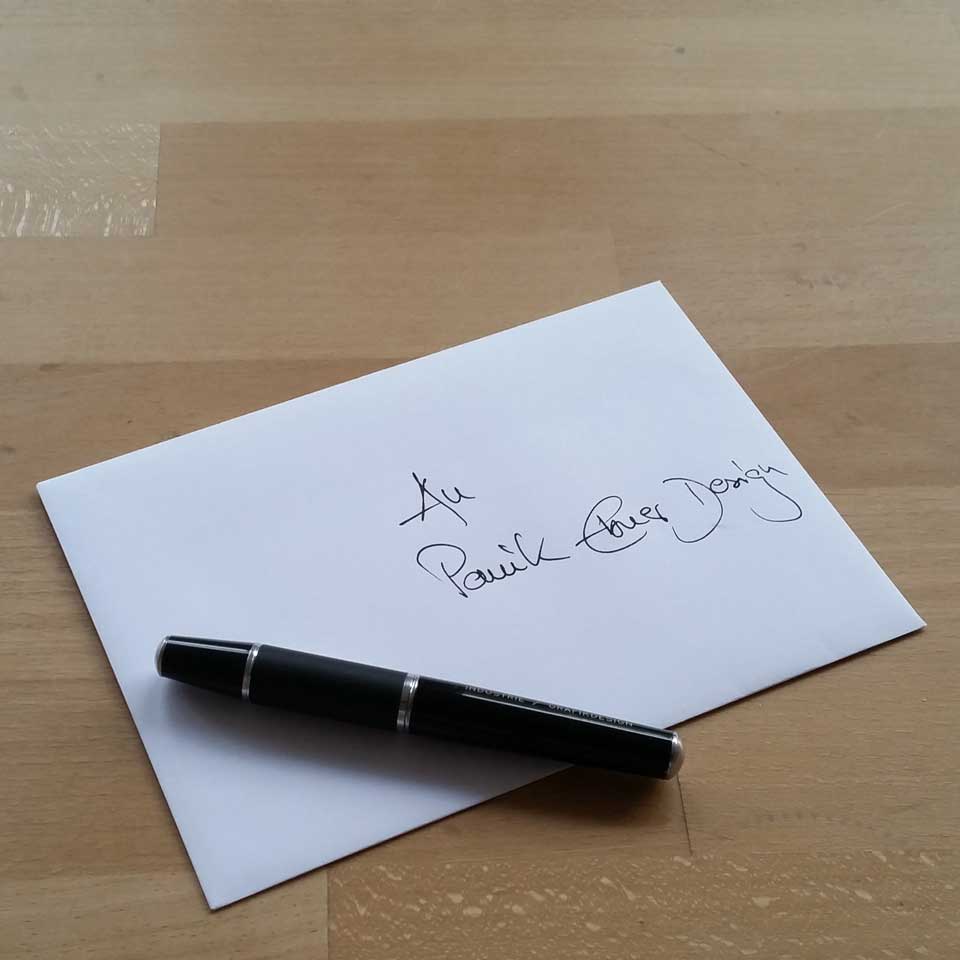 An
Panik Ebner Design
INDUSTRIE / GRAFIKDESIGN